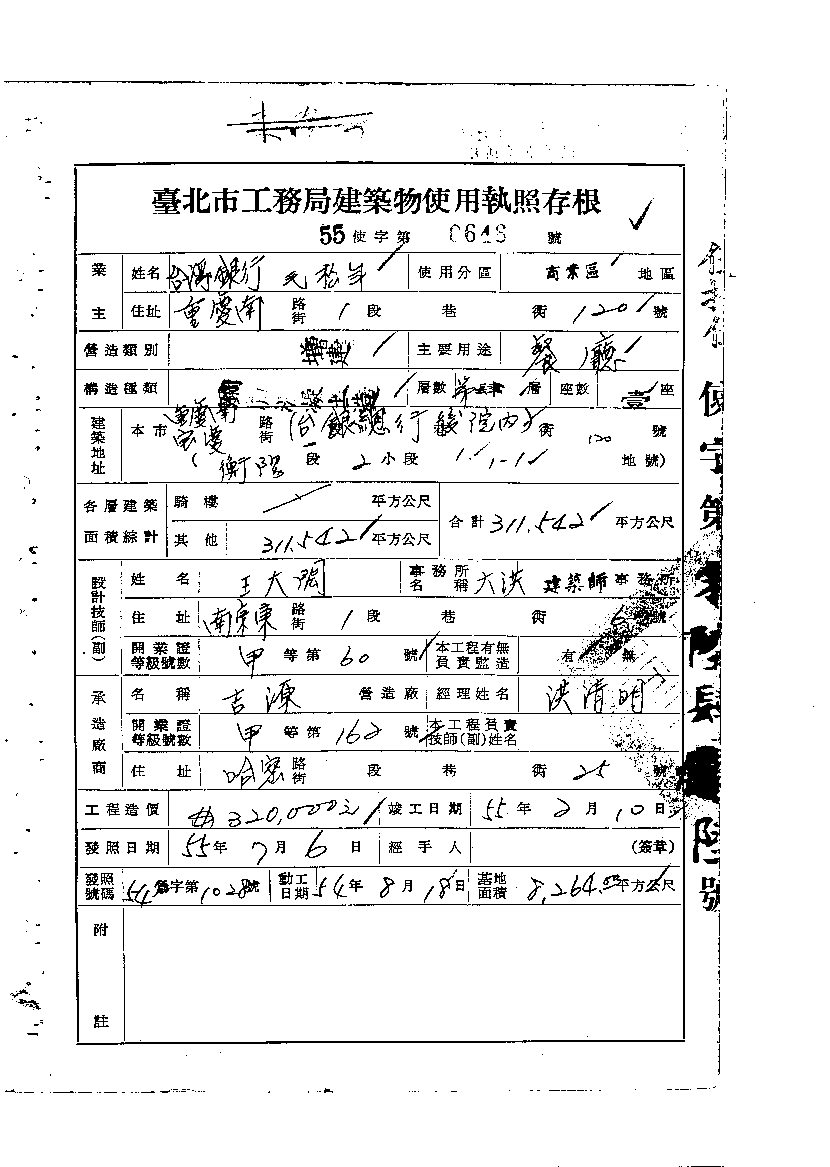 臺北市工務局建築物使用執照存根
55使字第 0646 號
業主 姓名 台灣銀行 毛松年 使用分區 商業區 地區
住址 重慶南 路街 1 段 巷 街 120 號
營造類別 增建 主要用途 餐廳
構造種類 層數 層 座數 壹 座
建築地址 本市 重慶南 路街 (台銀總行後院內) 街 120 號
( 段 2 小段 1、1-1 地號)
各層建築面積綜計 騎樓 平方公尺 合計 311.542 平方公尺
其他 311.542 平方公尺
設計技師(副) 姓名 王大閎 事務所名稱 大洪 建築師 事務所
住址 南京東 路街 1 段 巷 街 6 號
開業證等級號數 甲 等第 60 號 本工程有無負責監造 有 無
承造廠商 名稱 吉源 營造廠 經理姓名 洪清明
開業證等級號數 甲 等第 162 號 本工程負責技師(副)姓名
住址 哈密 路街 段 巷 街 25 號
工程造價 320,000元 竣工日期 55年2月10日
發照日期 55年7月6日 經手人 (簽章)
發照號碼 54 字第1028號 動工日期 54年8月18日 基地面積 8,264. 平方公尺
附註
使字第 陸肆 陸號